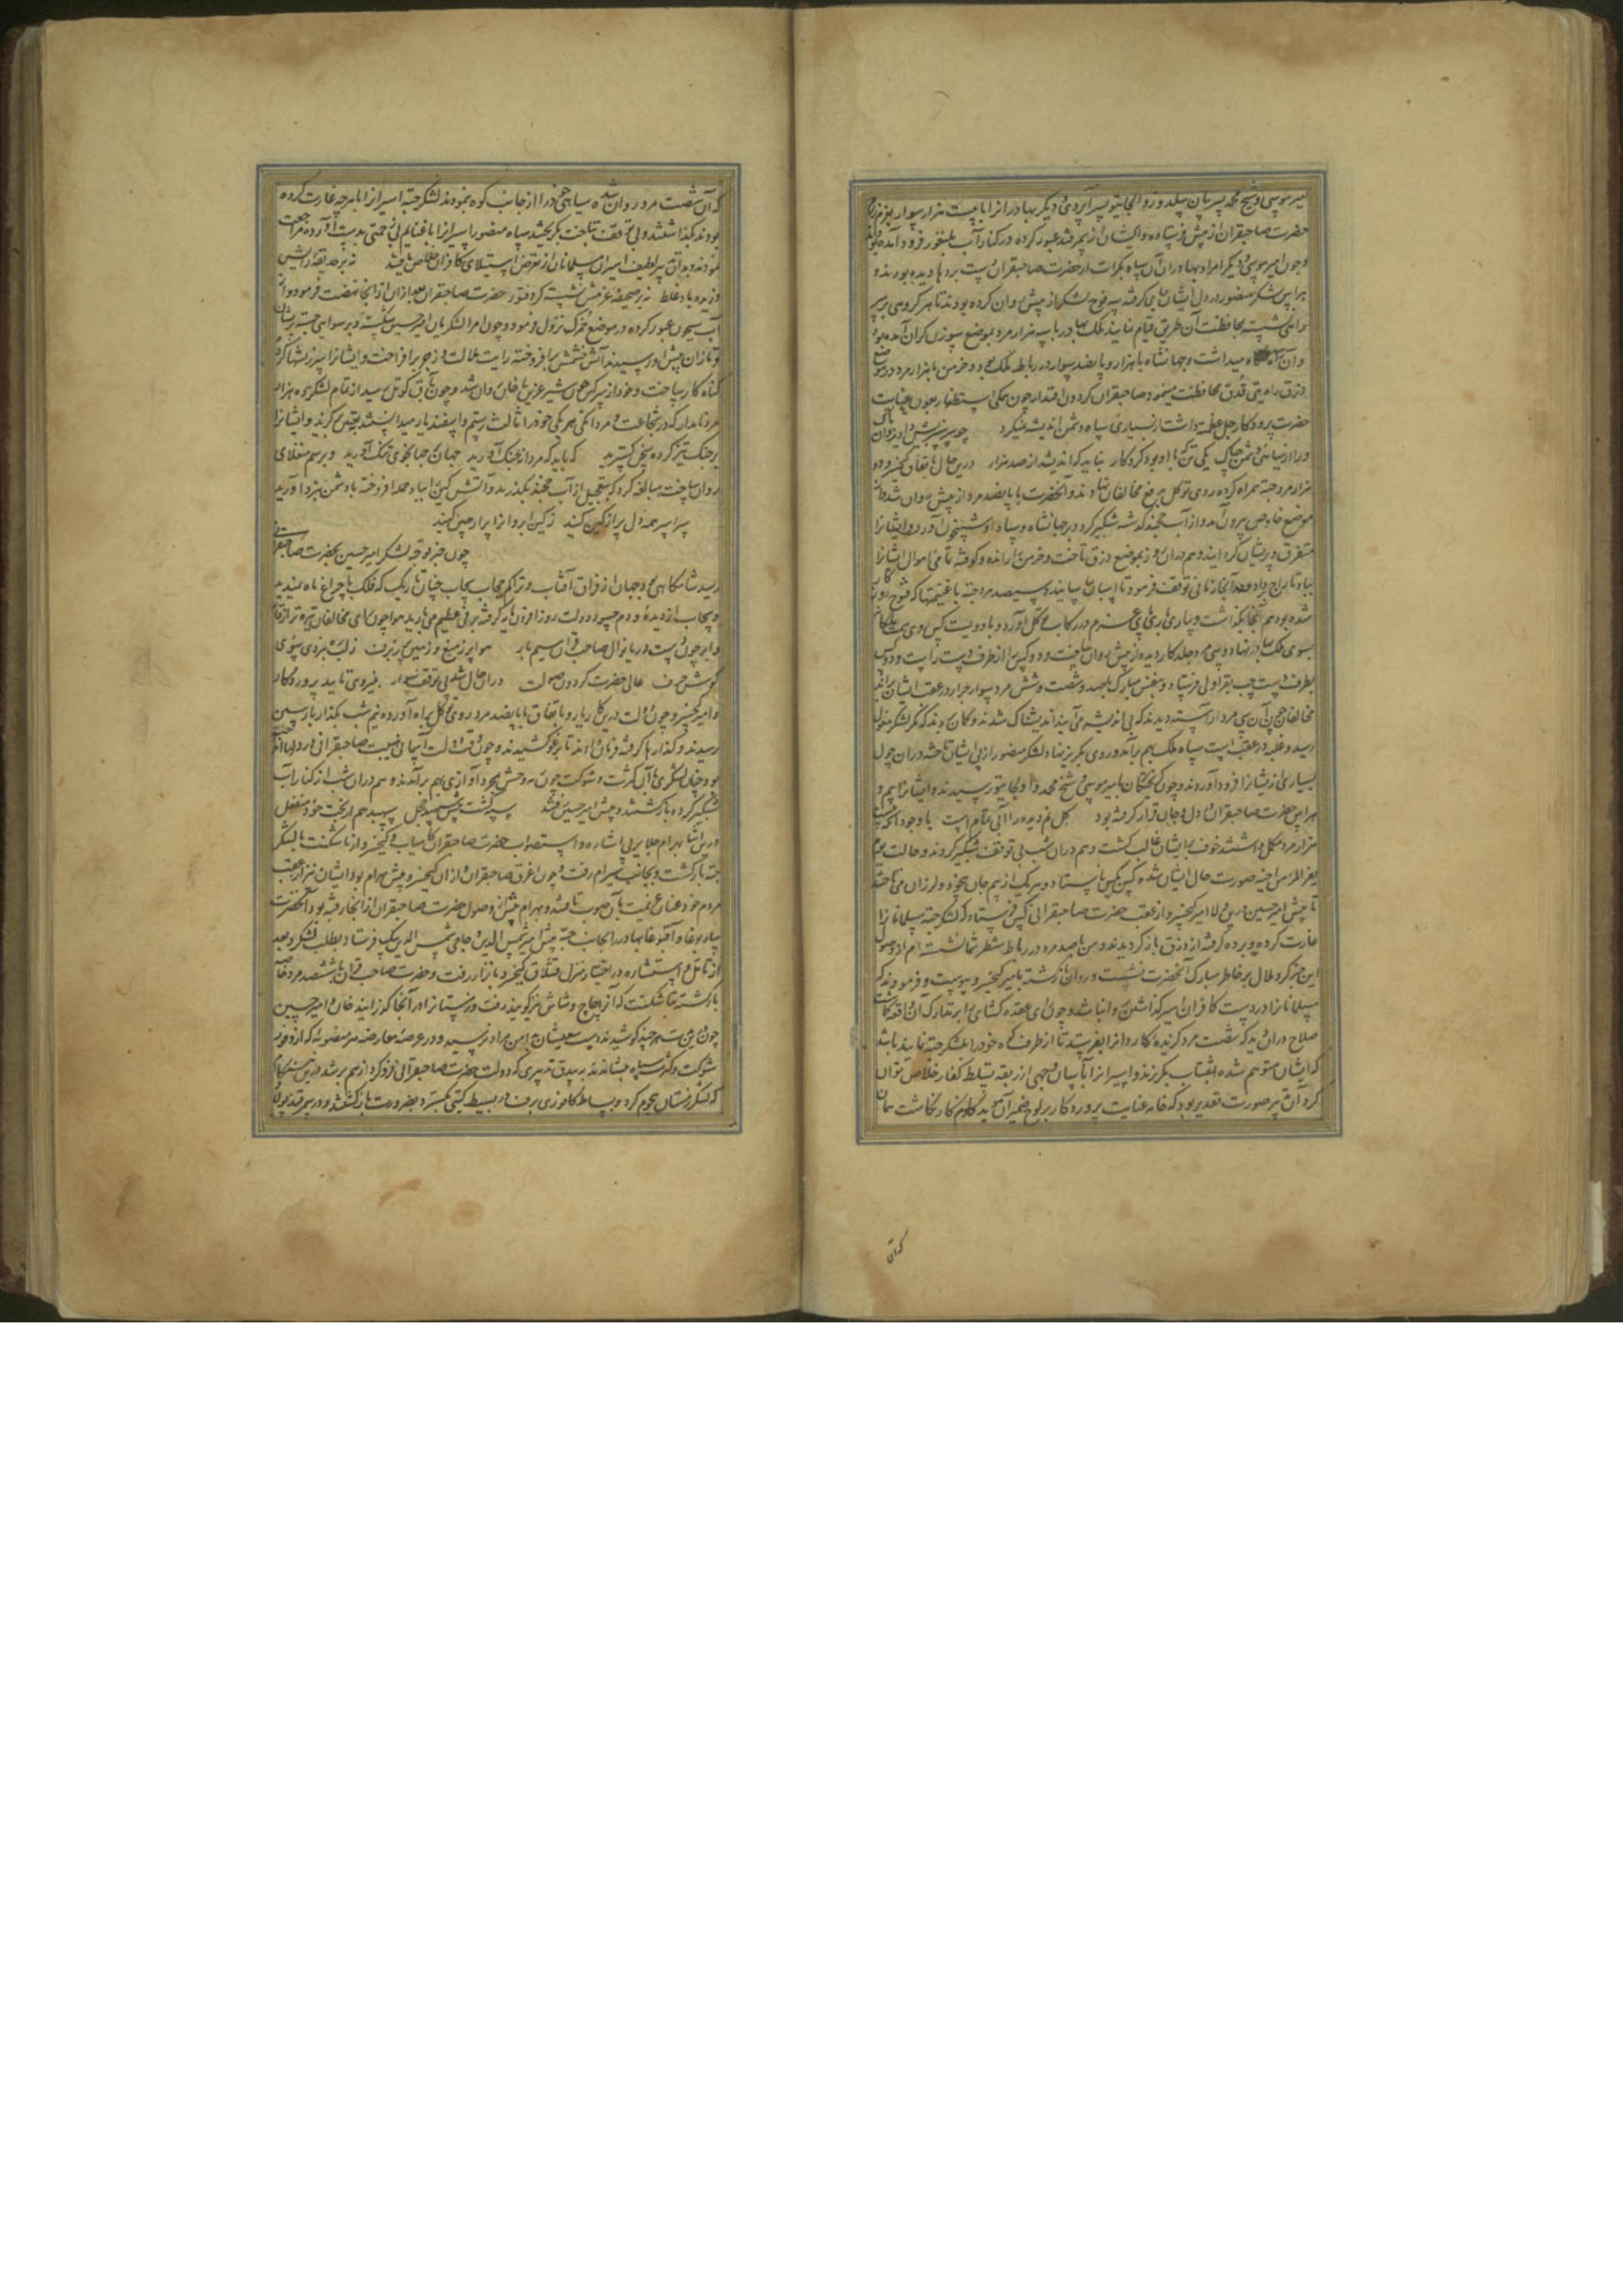 امیر موسی و شیخ محمد پسر بیان سلدوز و الجایتو پسر آپردی و دیگر بهادرانرا با بیست هزار سوار
حضرت صاحبقران از پیش فرستاده و ایشان از سمرقند عبور کرده در کنار آب بلنغور فرود آمده
و چون امیر موسی و دیگر امرا و بهادران آن سپاه بکرات از حضرت صاحبقران دست بردها دیده بودند و
هراس لشکر منصور در دل ایشان جای گرفته سه فوج لشکر از پیش روان کرده بودند تا هر گروهی بر سر
راهی نشسته بمحافظت آن طریق قیام نمایند ملک بهادر با سه هزار مرد بموضع سوزن گران آمده بود
وان راه نگاه میداشت و جهانشاه با هزار و پانصد سوار در رباط ملک بود و خرمن با هزار مرد در موضع
دزق راه یتی قدق محافظت مینمود صاحبقران گردون اقتدار چون همگی استظهار بعون عنایت
حضرت پروردگار جل و علا داشت از بسیاری سپاه دشمن اندیشه نمیکرد
یکی تن که با او بود کردگار نباید که اندیشد از صد هزار درین حال باتفاق کیخسرو و دو
هزار مرد جته همراه کرده روی توکل بدفع مخالفان نهادند و آنحضرت با پانصد مرد از پیش روان شد و از
موضع خاوص بیرون آمد و از آب خجند گذشته شبگیر کرد و بر جهانشاه و سپاه او شبیخون آورد و ایشانرا
متفرق و پریشان گردانید و هم دران روز بموضع دزق تاخت و خرمن را رانده و کوفته تمامی اموال ایشانرا
بباد تاراج داد و آنجا زمانی توقف فرمود تا اسبان بیاسایند و سیصد مرد جته با غنیمتها که
شده بود هم آنجا بگذاشت و
بسوی ملک بهادر نهاد و سی مرد جلد کار دیده از پیش روان ساخت و دو کس را از طرف دست راست و دو کس
بطرف دست چپ بقراولی فرستاد و بنفس مبارک با صد و شصت و شش مرد سوار جرار در عقب ایشان
مخالفان چون آن سی مرد آراسته دیدند که بی اندیشه می‌آیند اندیشناک شدند و گمان بردند که مگر لشکر مغول
رسید و غلبه در عقب است سپاه ملک بهم برآمد و روی بگریز نهاد و لشکر منصور از پی ایشان تاخته دران چول
بسیاری از ایشانرا فرود آوردند و چون گریختگان بامیر موسی و شیخ محمد و الجایتو رسیدند و ایشانرا بیم و
هراس حضرت صاحبقران در دل و جان قرار گرفته بود گل نم دیده را آبی تمام است با وجود آنکه
هزار مرد مکمل داشتند خوف بر ایشان غالب گشت و هم دران شب بی توقف شبگیر کردند و حالت یوم
یفر المرء من اخیه صورت حال ایشان شده کس بکس نایستاد و هر یک از بیم جان بیخود و لرزان می‌تاختند
تا پیش امیر حسین درین ولا امیر کیخسرو از عقب حضرت صاحبقرانی کس فرستاد که لشکر جته مسلمانانرا
غارت کرده و برده گرفته از دزق باز گردیدند و من با صد مرد در رباط
این خبر گرد ملال بر خاطر مبارک آنحضرت نشست و روان باز گشته بامیر کیخسرو پیوست و فرمودند که
مسلمانانرا در دست کافران اسیر گذاشتن روا نباشد و چون رای عقده گشای برای تدارک آن واقعه
صلاح دران دید که شصت مرد گزیده کاردانرا بفرستد تا از طرف کوه خودرا بلشکر جته نمایند باشد
که ایشان متوهم شده بشتاب بگریزند و اسیرانرا بآسان وجهی از ربقه تسلط کفار خلاص توان
کرد آن تدبیر صورت تقدیر بود که خامه عنایت پروردگار بر لوح ضمیر آن موید کامگار نگاشت همان
که آن
که آن شصت مرد روان شده سیاهی خودرا از جانب کوه بنمودند لشکر جته اسیرانرا با هر چه غارت کرده
بودند بگذاشتند و بی توقف بتاخت بگریختند سپاه منصور اسیرانرا با غنایم بی زحمتی بدست آورده مراجعت
نمودند و بدان تدبیر لطیف اسیران مسلمانان از تعرض و استیلای کافران خلاص یافتند
وزیده باد غلط نه بر صحیفه عزمش نشسته گرد فتور حضرت صاحبقران بعد ازان از آنجا نهضت فرمود و از
آب سیحون عبور کرده در موضع خمرک نزول فرمود و چون امرا لشکریان امیر حسین شکسته و برسوایی جسته
و تازان پیش او رسیدند آتش خشمش برافروخته رایت ملالت و زجر برافراخت و ایشانرا سرزنشها کرد
گناه کار ساخت و خود از سر کین همچون شیر عرین با خان روان شد و چون بآق کوتل رسید از تمام لشکر ده هزار
مرد نامدار که در شجاعت و مردانگی هر یکی خودرا ثالث رستم و اسفندیار میدانستند بتعیین گزید و ایشانرا
بر جنگ تیز کرده سخن گسترید که باید که مردانه جنگ آورید جهان بر جهانجوی تنگ آورید و برسم منغلای
روان ساخت مبالغه کرد که بتعجیل از آب خجند بگذرند و آتش کین را بباد حمله افروخته با دشمن نبرد آورید
سراسر همه دل پر از کین کنید ز کین ابروانرا پر از چین کنید
چون خبر توجه لشکر امیر حسین بحضرت صاحبقرانی
رسید شامگاهی بود جهان از فراق آفتاب و تراکم حجاب سحاب چنان تاریک که فلک با چراغ ماه نمیدید
و سحاب از دیده و دم حسود دولت روز افزون مایه گرفته برفی عظیم می‌بارید هوا چون رای مخالفان تیره تر از
و ابر چون دست دریا نوال صاحب قران سیم بار هوا پر ز میغ و زمین پر ز برف
گوش حرف عالی حضرت گردون صولت دران حال شبی بی توقف سوار بنیروی تایید پروردگار
و امیر کیخسرو چون دولت درین کار یار و باتفاق با پانصد مرد روی توکل براه آورده نیم شب بگذار بارسین
رسیدند و گذارها گرفته فرمان دادند تا برغو کشیدند و چون قوت دولت آسمانی و هیبت صاحبقرانی در دلها
بود چنان لشکری با آن کثرت و شوکت چون مه و خش بمجرد آوازی بهم برآمدند و هم دران شب از کنار آب
شبگیر کرده باز گشتند و پیش امیر حسین رفتند سپه گشت پیش سپهبد خجل سپهبد هم از بخت خود منفعل
درین اثنا بهرام جلایر بی اشاره و استصواب حضرت صاحبقران کامیاب و کیخسرو از تاشکنت با لشکر
جته بازگشت و بجانب سیرام رفت و چون اغرق صاحبقران و ازان کیخسرو پیش بهرام بود ایشان نیز از عقب
مردم خود عنان عزیمت بآن صوب تافتند و بهرام پیش از وصول حضرت صاحبقران از آنجا رفته بود آنحضرت
بیان بوغا و آقبوغا بهادر را بجانب جته پیش امیر شمس الدین و حاجی شمس الدین بیک فرستاد بطلب لشکر و بعد
از تامل و استشاره در اختیار منزل قشلاق کیخسرو باترار رفت و حضرت صاحب قران با ششصد مرد خاصه
بازگشته بتاشکنت که آنرا چاچ و شاش نیز گویند رفت و زمستانرا در آنجا گذرانید خان و امیر حسین
چون هر چند کوشیدند دست سعیشان بدامن مراد نرسید و در عرصه معارضه هر منصوبه که از وفور
شوکت و کثرت سپاه بنشاندند به بیدق تدبیری که دولت حضرت صاحبقرانی فرو کرد از هم برشد
که لشکر زمستان هجوم کرد و بساط کافوری برف در بسیط گیتی بگسترد بضرورت بازگشتند و در سمرقند